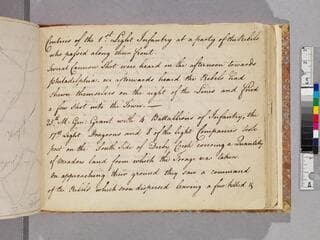 Centries of the 1st Light Infantry at a party of the Rebels
who passed along their front.
Several Cannon Shot were heard in the afternoon towards
Philadelphia. we afterwards heard the Rebels had
shewn themselves on the right of the Lines and fired
a few Shot into the Town.
25th M. Genl. Grant with 4 Battallions of Infantry, the
17th Light Dragoons and 8 of the Light Companies took
post on the South Side of Derby Creek covering a Quantity
of Meadow land from which the Forage was taken
on approaching their ground they saw a command
of the Rebels which soon dispersed leaving a few killed &